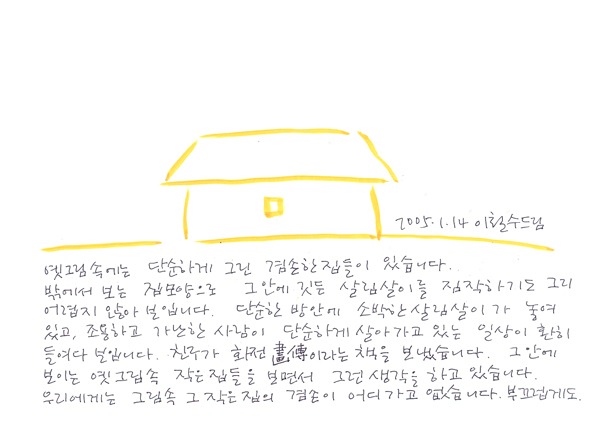 2005.1.14 이철수드림
옛그림속에는 단순하게 그린 겸손한집들이 있습니다.
밖에서 보는 집모양으로 그안에 깃든 살림살이를 짐작하기도 그리
어렵지 않아 보입니다. 단순한 방안에 소박한살림살이가 놓여
있고, 조용하고 가난한 사람이 단순하게 살아가고 있는 일상이 환히
들여다 보입니다. 친구가 화전 畫傳이라는 책을 보냈습니다. 그안에
보이는 옛그림속 작은집들을 보면서 그런생각을 하고 있습니다.
우리에게는 그림속 그작은집의 겸손이 어디가고 없습니다. 부끄럽게도.